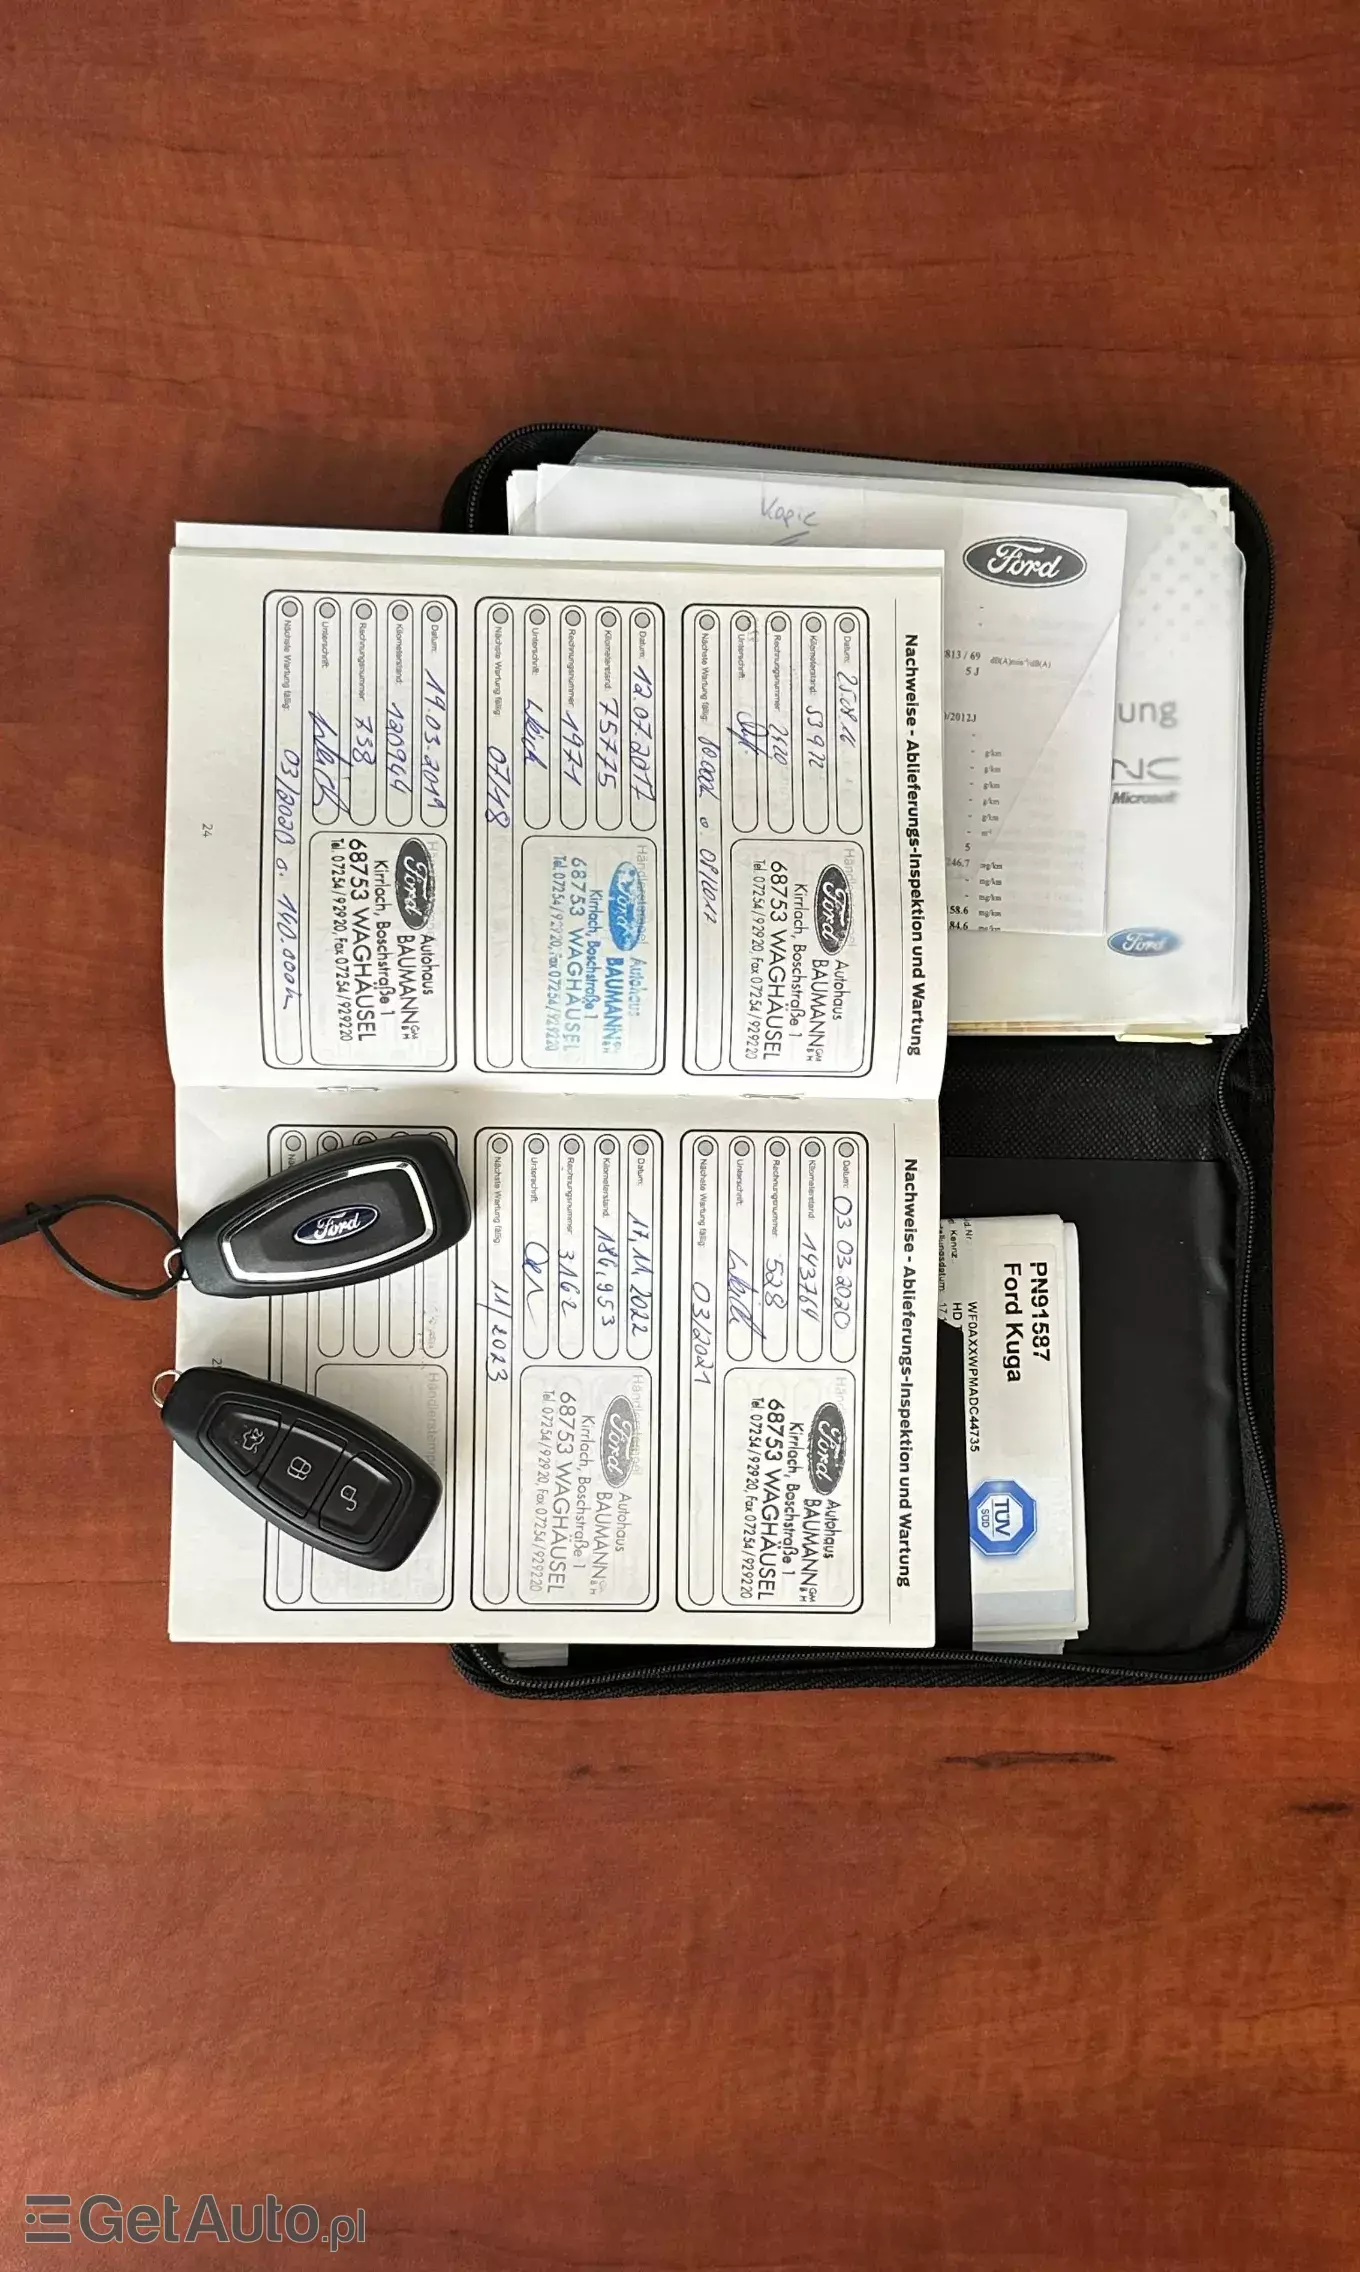 Kopie
Ford
813 / 69
dB(A)min⁻¹/dB(A)
5 J
/2012J
g/km
g/km
g/km
g/km
g/km
5
246.7 mg/km
mg/km
58.6 mg/km
84.6 mg/km
ung
NC
Microsoft
Ford
Nachweise - Ablieferungs-Inspektion und Wartung
Datum: 25.08.16
Kilometerstand: 53972
Rechnungsnummer: 2120
Unterschrift:
Nächste Wartung fällig:
Ford Autohaus
BAUMANN GMBH
Kirrlach, Boschstraße 1
68753 WAGHÄUSEL
Tel. 07254/92920, Fax 07254/929220
Datum: 12.07.2017
Kilometerstand: 75775
Rechnungsnummer: 1971
Unterschrift:
Nächste Wartung fällig: 07/18
Händlerstempel
Ford Autohaus
BAUMANN
Kirrlach, Boschstraße 1
68753 WAGHÄUSEL
Tel. 07254/92920, Fax 07254/929220
Datum: 19.03.2019
Kilometerstand: 120944
Rechnungsnummer: 738
Unterschrift:
Nächste Wartung fällig: 03/2020 o. 140.000km
Ford Autohaus
BAUMANN GMBH
Kirrlach, Boschstraße 1
68753 WAGHÄUSEL
Tel. 07254/92920, Fax 07254/929220
24
Nachweise - Ablieferungs-Inspektion und Wartung
Datum: 03.03.2020
Kilometerstand: 143764
Rechnungsnummer: 528
Unterschrift:
Nächste Wartung fällig: 03/2021
Ford Autohaus
BAUMANN GMBH
Kirrlach, Boschstraße 1
68753 WAGHÄUSEL
Tel. 07254/92920, Fax 07254/929220
Datum: 17.11.2022
Kilometerstand: 184.953
Rechnungsnummer: 3162
Unterschrift:
Nächste Wartung fällig: 11/2023
Händlerstempel
Ford Autohaus
BAUMANN GMBH
Kirrlach, Boschstraße 1
68753 WAGHÄUSEL
Tel. 07254/92920, Fax 07254/929220
Händlerstemp
Ford
PN91587
Ford Kuga
WF0AXXWPMADC44735
Kennz.
HD
TÜV
SÜD
GetAuto.pl